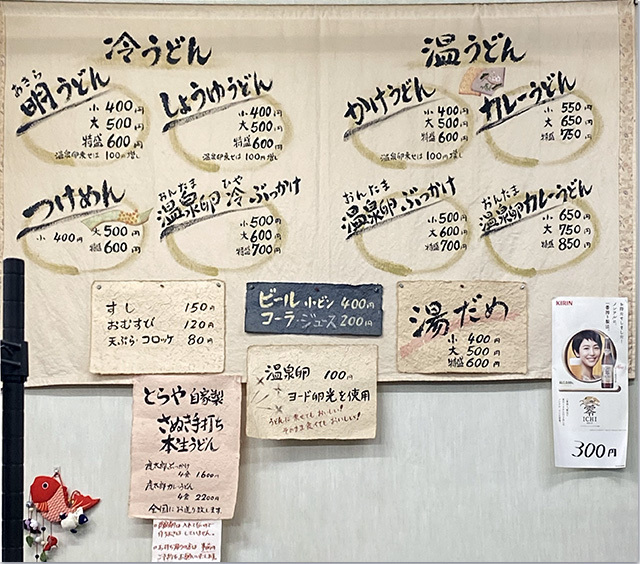 冷うどん
あきら
明うどん
小 400円
大 500円
特盛 600円
温泉卵乗せは 100円増し
しょうゆうどん
小 400円
大 500円
特盛 600円
温泉卵乗せは 100円増し
つけめん
小 400円
大 500円
特盛 600円
おんたま ひや
温泉卵 冷 ぶっかけ
小 500円
大 600円
特盛 700円
温うどん
かけうどん
小 400円
大 500円
特盛 600円
温泉卵乗せは 100円増し
カレーうどん
小 550円
大 650円
特盛 750円
おんたま
温泉卵 ぶっかけ
小 500円
大 600円
特盛 700円
おんたま
温泉卵カレーうどん
小 650円
大 750円
特盛 850円
すし 150円
おむすび 120円
天ぷら・コロッケ 80円
ビール 小ビン 400円
コーラ・ジュース 200円
湯だめ
小 400円
大 500円
特盛 600円
温泉卵 100円
ヨード卵光を使用
うどんに乗せておいしい!
そのまま食べてもおいしい!
とらや 自家製
さぬき手打ち
本生うどん
4食 1600円
4食 2200円
全国にお送り致します
KIRIN
零
ICHI
300円